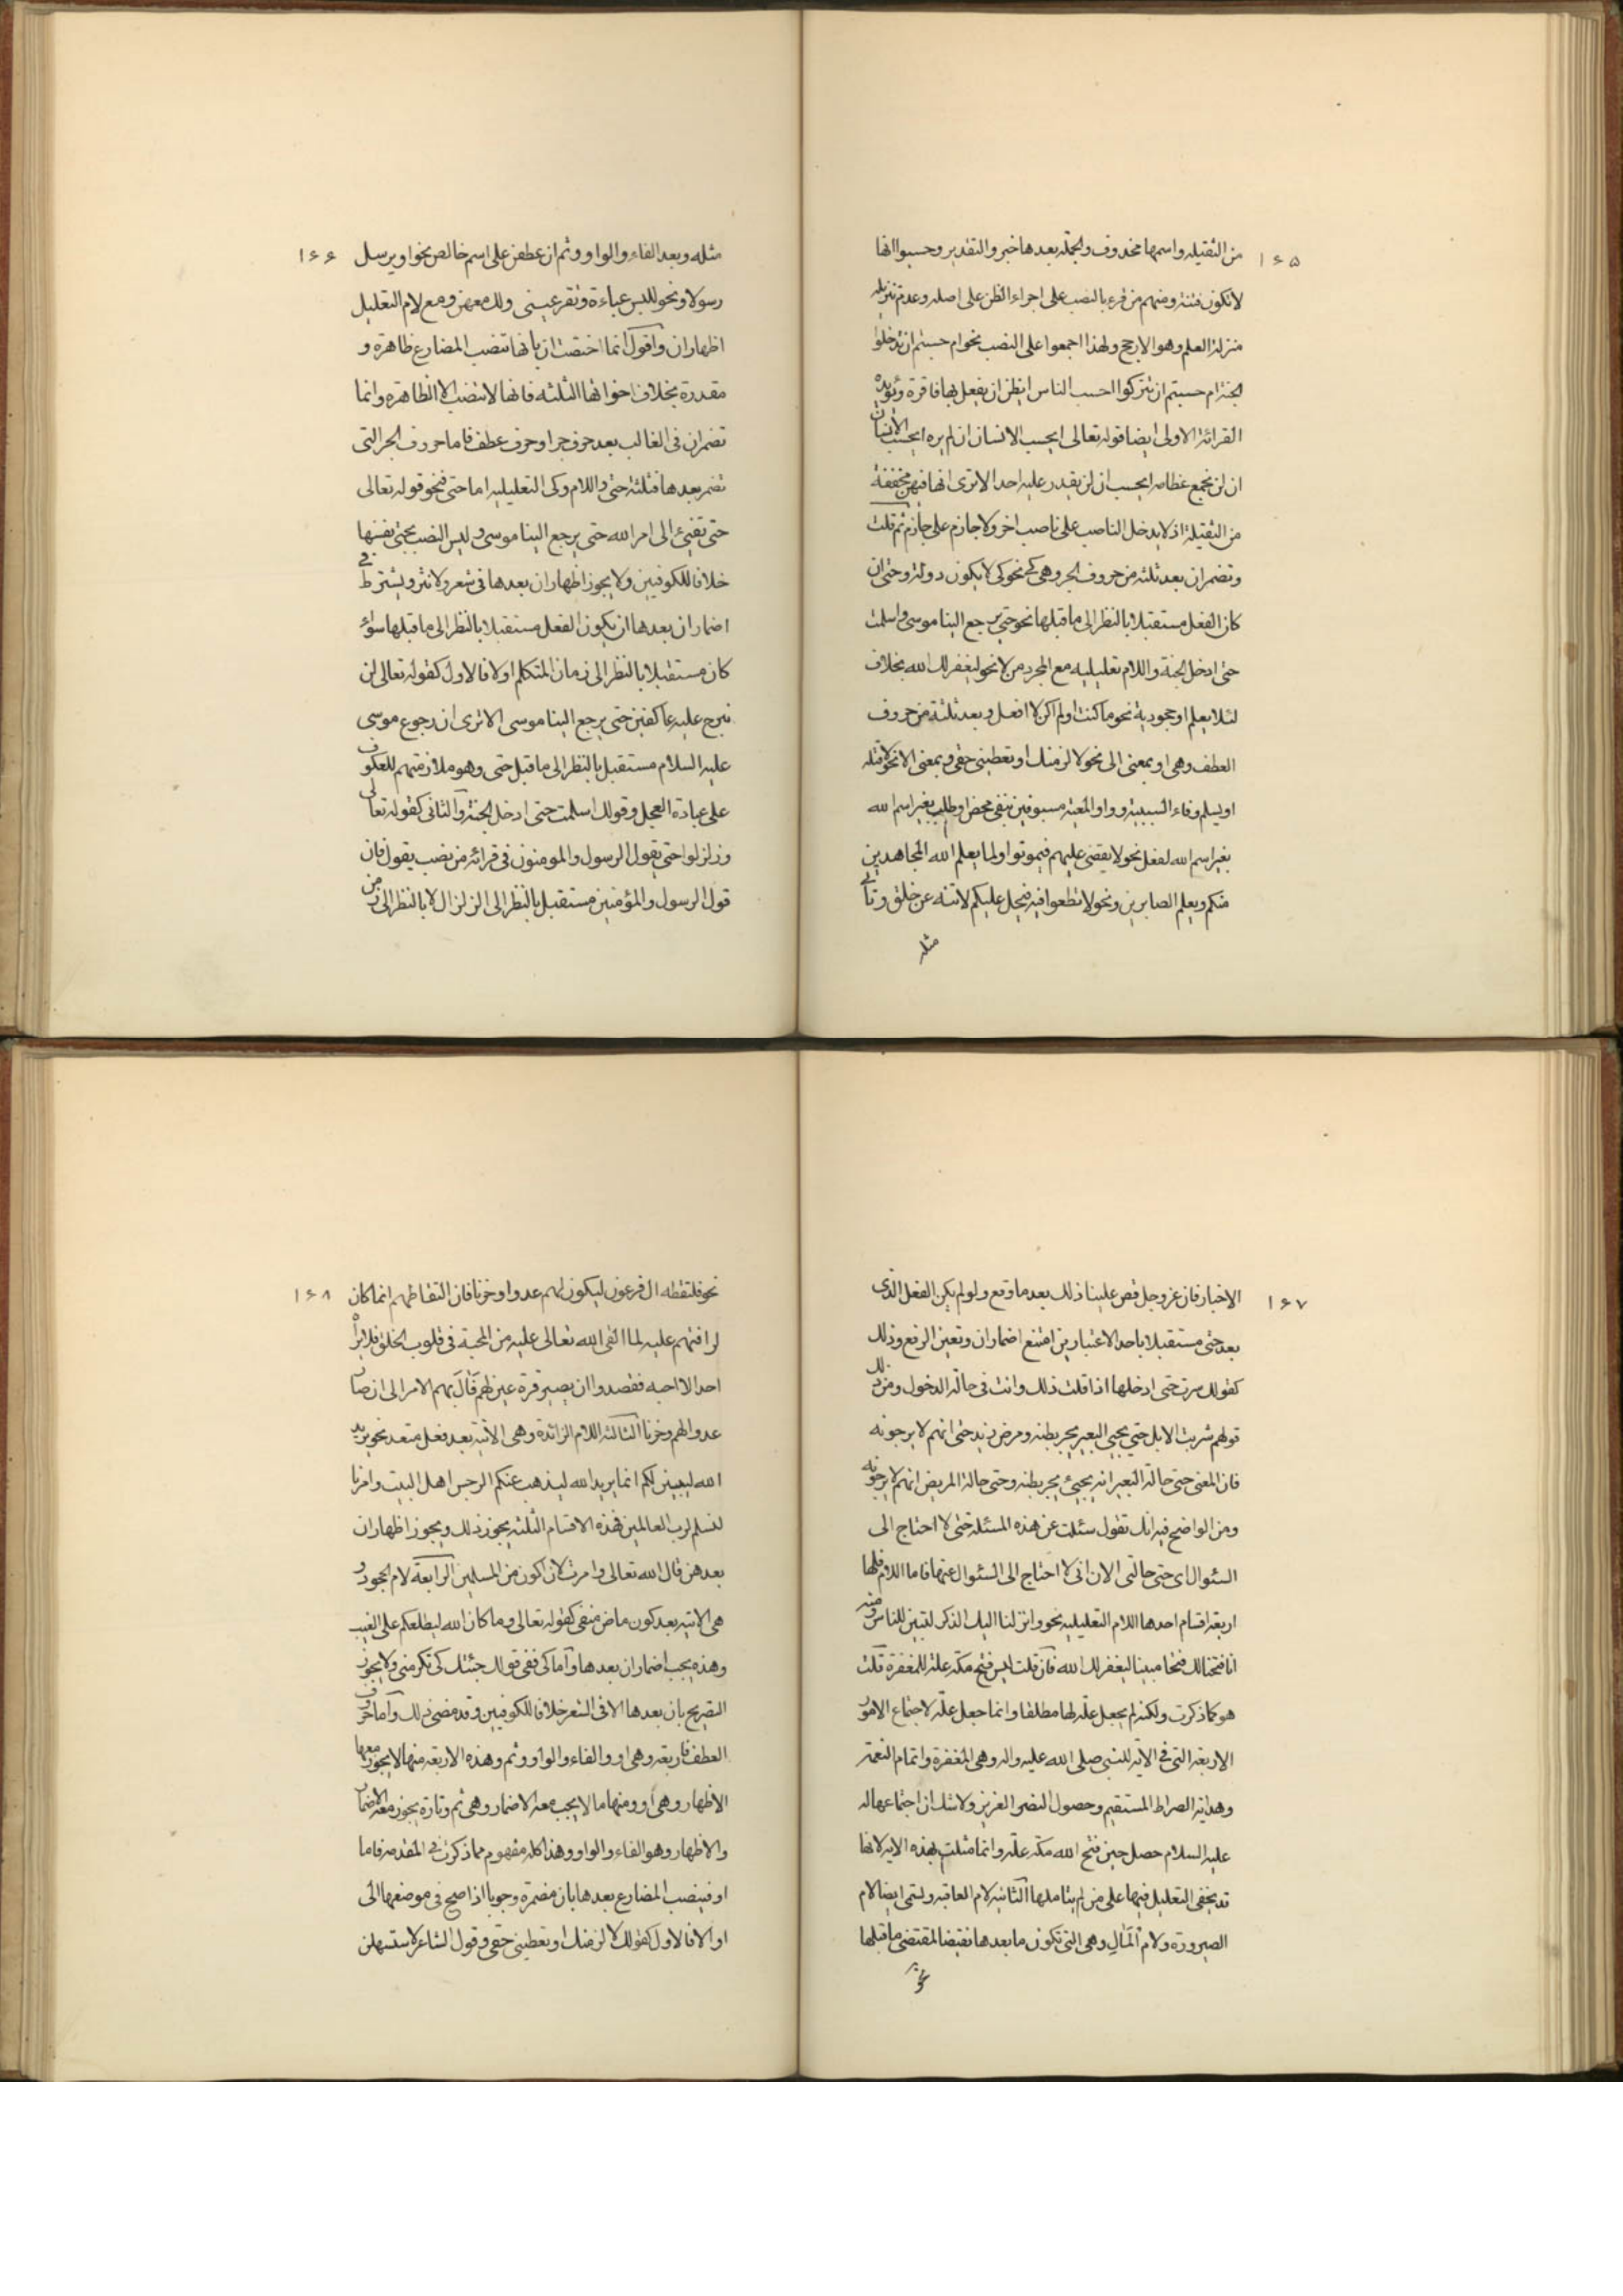 ١۶۵
من الثقيله واسمها محذوف والجملة بعدها خبر والتقدير وحسبوا انها
لا تكون فتنة ومنهم من قرء بالنصب على اجراء الظن على اصله وعدم تنزيله
منزلة العلم وهو الارجح ولهذا اجمعوا على النصب نحو ام حسبتم ان تدخلوا
الجنة ام حسبتم ان تتركوا احسب الناس ايظن ان يفعل بها فاقرة وتؤيده
القرائة الاولى ايضا قوله تعالى ايحسب الانسان ان لم يره ايحسب الانسان
ان لن نجمع عظامه ايحسب ان لن يقدر عليه احد الا ترى انها فيهن مخففة
من الثقيلة اذ لا يدخل الناصب على ناصب اخر ولا جازم على جازم ثم قلت
وتضمر ان بعد ثلثه من حروف الجر وهى كى نحو كى لا يكون دولة وحتى ان
كان الفعل مستقبلا بالنظر الى ما قبلها نحو حتى يرجع الينا موسى واسلمت
حتى ادخل الجنة واللام تعليليه مع المجرد من لا نحو ليغفر لك الله بخلاف
لئلا يعلم او جحودية نحو ما كنت او لم اكن لافعل وبعد ثلثة من حروف
العطف وهى او بمعنى الى نحو لالزمنك او تعطينى حقى وبمعنى الا نحو لاقتله
او يسلم وفاء السببية وواو المعية مسبوقين بنفى محض او طلب بغير اسم الله
بغير اسم الله لفعل نحو لا يقضى عليهم فيموتوا ولما يعلم الله المجاهدين
منكم ويعلم الصابرين ونحو لا تطغوا فيه فيحل عليكم لا تنه عن خلق وتأتى
مثله
١۶۶
مثله وبعد الفاء والواو وثم ان عطفن على اسم خالص نحو او يرسل
رسولا ونحو للبس عباءة وتقر عينى ولك معهن ومع لام التعليل
اظهار ان واقول انما اختصت ان بانها تنصب المضارع ظاهرة و
مقدرة بخلاف اخواتها الثلثه فانها لا تنصب الا الظاهرة وانما
تضمر ان فى الغالب بعد حرف جر او حرف عطف فاما حروف الجر التى
تضمر بعدها فثلثة حتى واللام وكى التعليليه اما حتى فنحو قوله تعالى
حتى تفىئ الى امر الله حتى يرجع الينا موسى وليس النصب بحتى نفسها
خلافا للكوفيين ولا يجوز اظهار ان بعدها فى شعر ولا نثر ويشترط فى
اضمار ان بعدها ان يكون الفعل مستقبلا بالنظر الى ما قبلها سواء
كان مستقبلا بالنظر الى زمان المتكلم او لا فالاول كقوله تعالى لن
نبرح عليه عاكفين حتى يرجع الينا موسى الا ترى ان رجوع موسى
عليه السلام مستقبل بالنظر الى ما قبل حتى وهو ملازمتهم للعكوف
على عبادة العجل وقولك اسلمت حتى ادخل الجنة والثانى كقوله تعالى
وزلزلوا حتى يقول الرسول والمومنون فى قرائة من نصب يقول فان
قول الرسول والمؤمنين مستقبل بالنظر الى الزلزال لا بالنظر الى زمن
١۶٧
الاخبار فان عز وجل قص علينا ذلك بعد ما وقع ولو لم يكن الفعل الذى
بعد حتى مستقبلا باحد الاعتبارين امتنع اضمار ان وتعين الرفع وذلك
كقولك سرت حتى ادخلها اذا قلت ذلك وانت فى حالة الدخول ومن ذلك
قولهم شربت الابل حتى يجيى البعير يجر بطنه ومرض زيد حتى انهم لا يرجونه
فان المعنى حتى حالة البعير انه يجيئ يجر بطنه وحتى حالة المريض انهم لا يرجونه
ومن الواضح فيه انك تقول سئلت عن هذه المسئلة حتى لا احتاج الى
السئوال اى حتى حالتى الان انى لا احتاج الى السئوال عنها فاما اللام فلها
اربعة اقسام احدها اللام التعليليه نحو وانزلنا اليك الذكر لتبين للناس ومنه
انا فتحنا لك فتحا مبينا ليغفر لك الله فان قلت ليس فتح مكة علة للمغفرة قلت
هو كما ذكرت ولكنه لم يجعل علة لها مطلقا وانما جعل علة لاجتماع الامور
الاربعة التى فى الاية للنبى صلى الله عليه واله وهى المغفرة واتمام النعمة
وهداية الصراط المستقيم وحصول النصر العزيز ولا شك ان اجتماعها له
عليه السلام حصل حين فتح الله مكة علة وانما مثلت بهذه الايه لانها
قد يخفى التعليل فيها على من لم يتاملها الثانيه لام العاقبه وتسمى ايضا لام
الصيرورة ولام المال وهى التى تكون ما بعدها نقيضا لمقتضى ما قبلها
نحو
١۶٨
نحو فلتقطه ال فرعون ليكون لهم عدوا وحزنا فان التقاطهم انما كان
لرافتهم عليه لما القى الله تعالى عليه من المحبة فى قلوب الخلق فلا يراه
احد الا احبه فقصدوا ان يصير قرة عين لهم قال بهم الامر الى ان صار
عدوا لهم وحزنا الثالثة اللام الزائدة وهى الاتية بعد فعل متعد نحو يريد
الله ليبين لكم انما يريد الله ليذهب عنكم الرجس اهل البيت وامرنا
لنسلم لرب العالمين فهذه الاقسام الثلثة يجوز ذلك ويجوز اظهار ان
بعدهن قال الله تعالى وامرت لان اكون من المسلمين الرابعة لام الجحود و
هى الاتية بعد كون ماض منفى كقوله تعالى وما كان الله ليطلعكم على الغيب
وهذه يجب اضمار ان بعدها واما كى ففى قولك جئتك كى تكرمنى ولا يجوز
التصريح بان بعدها الا فى الشعر خلافا للكوفيين وقد مضى ذلك واما حروف
العطف فاربعة وهى او والفاء والواو وثم وهذه الاربعة منها لا يجوز معها
الاظهار وهى او ومنها ما لا يجب معه الاضمار وهى ثم وتارة يجوز معه الاضمار
والاظهار وهو الفاء والواو وهذا كله مفهوم مما ذكرت فى المقدمه فاما
او فينصب المضارع بعدها بان مضمرة وجوبا اذا صح فى موضعها الى
او الا فالاول كقولك لالزمنك او تعطينى حقى وقول الشاعر لاستسهلن